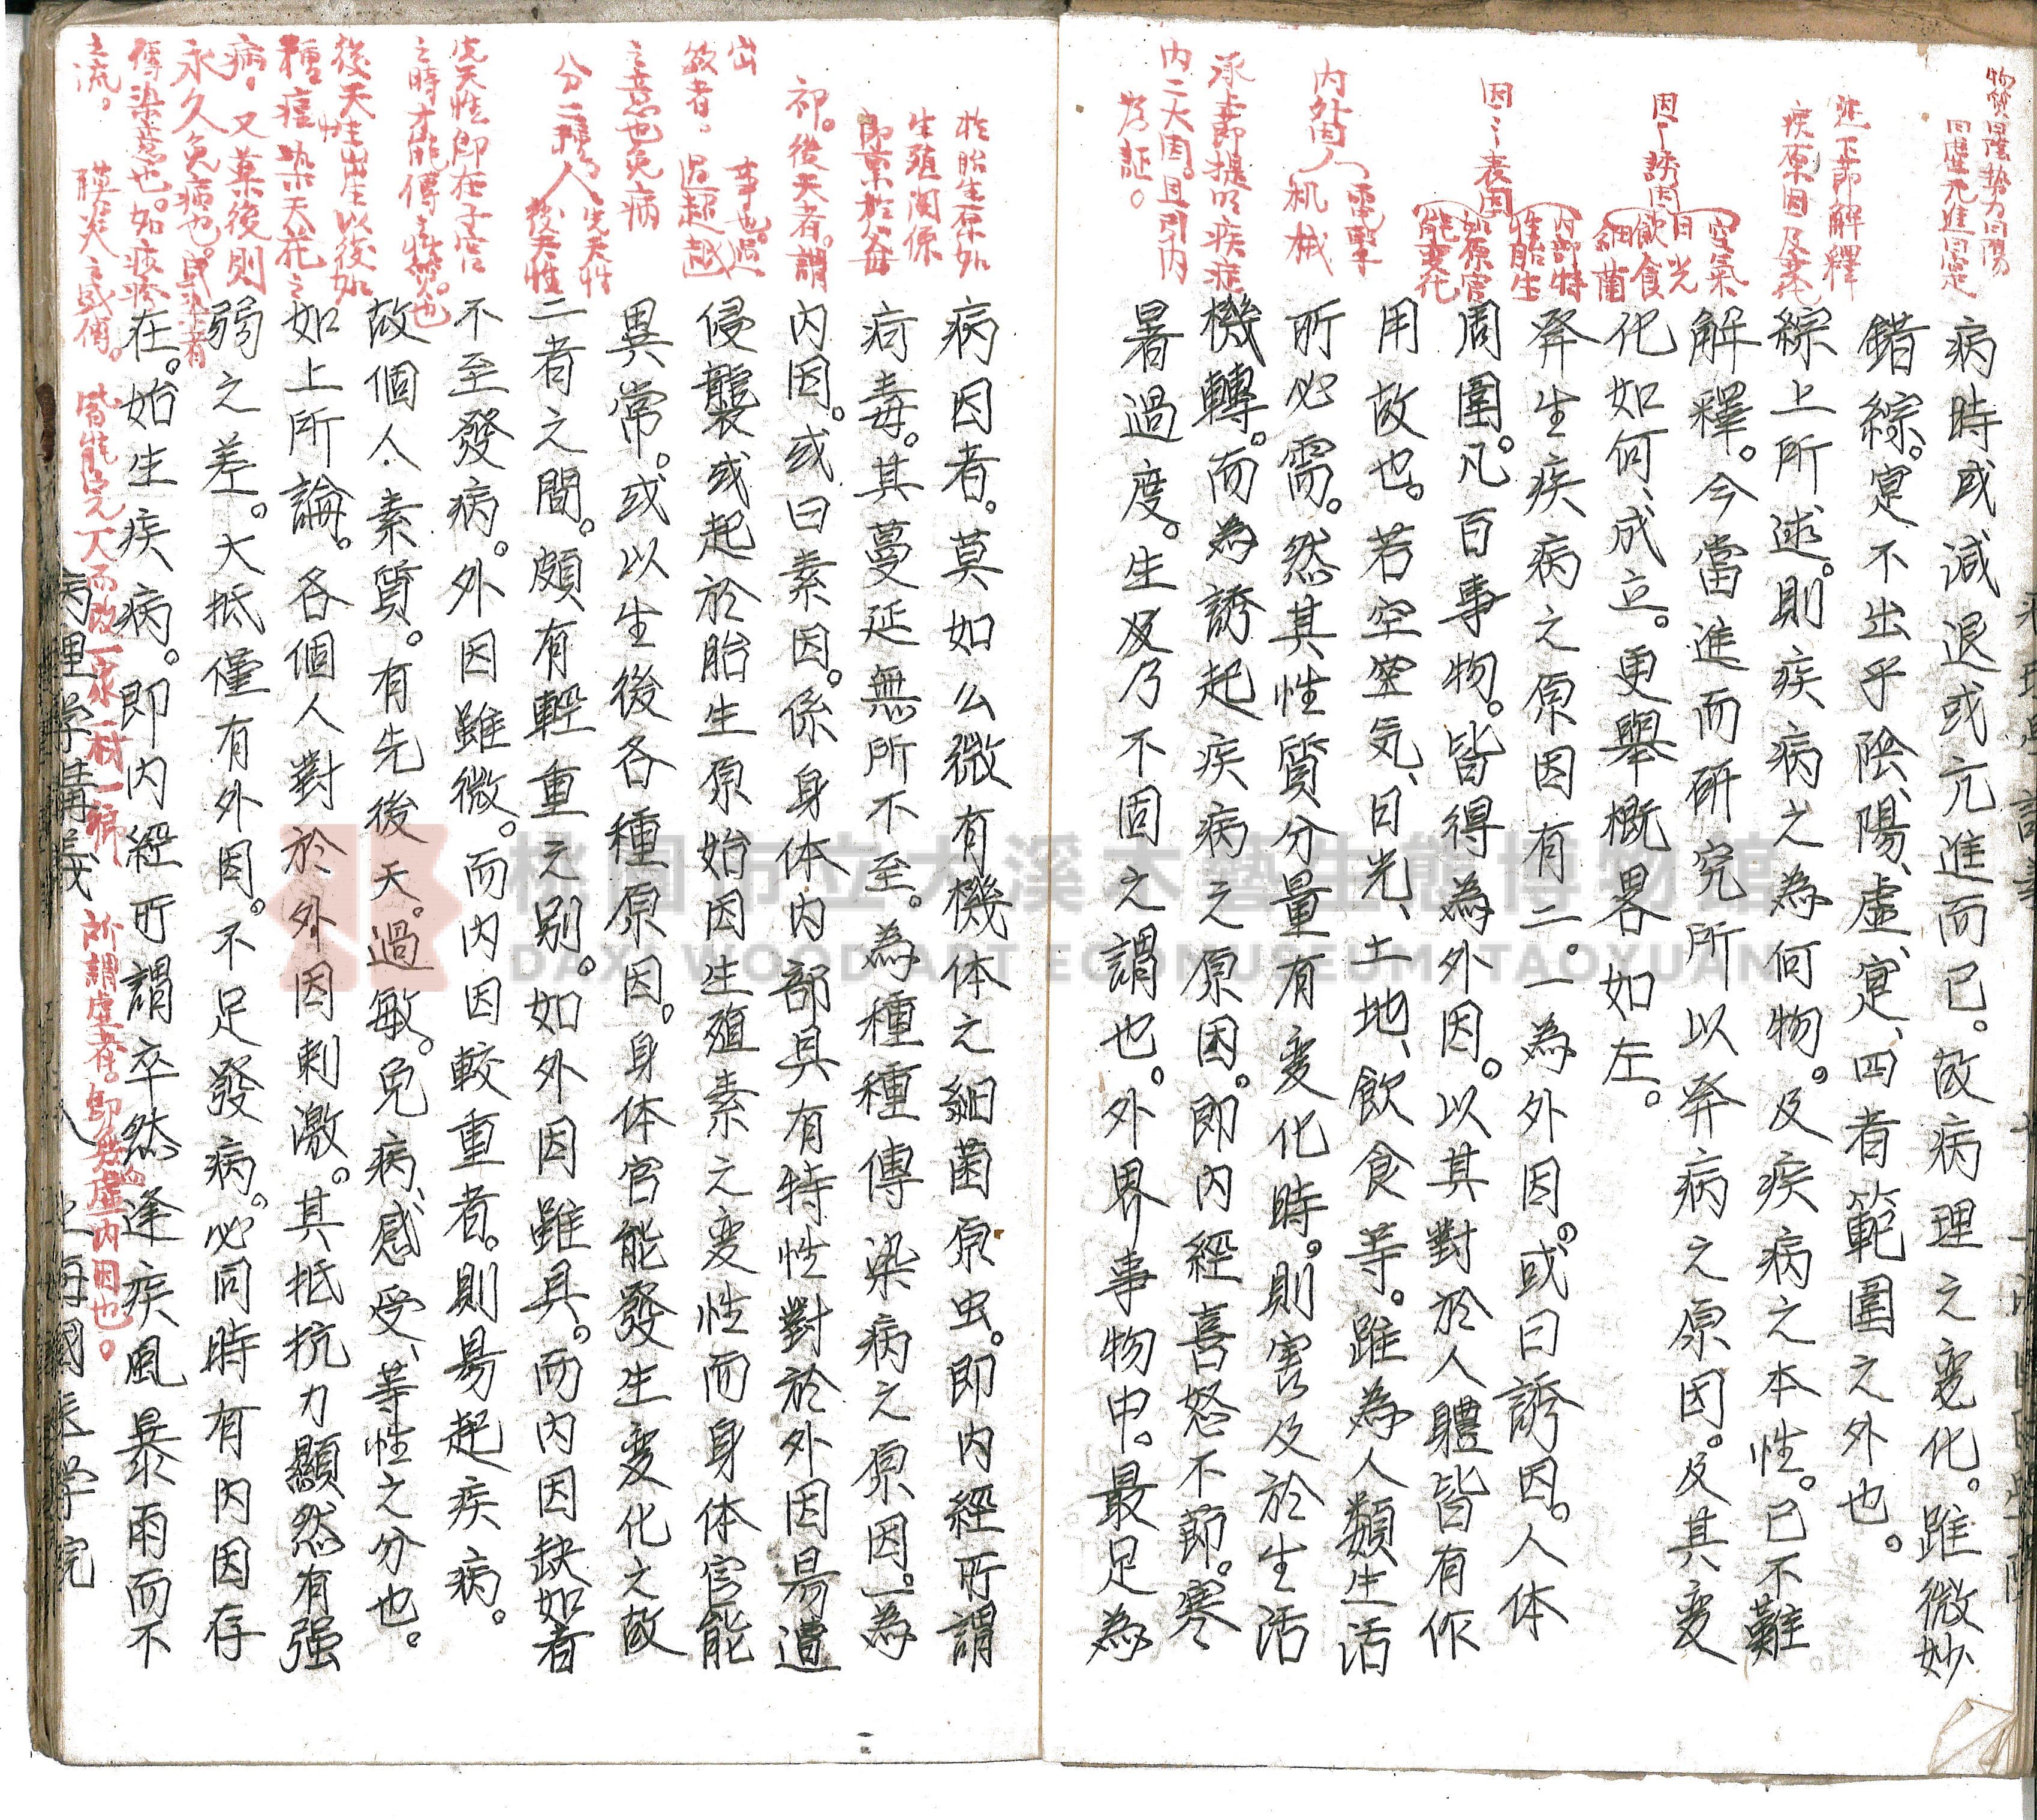 病時或減退或亢進而已。故病理之変化。雖微妙
錯綜。寔不出乎陰、陽、虛、寔、四者範圍之外也。
綜上所述。則疾病之為何物。及疾病之本性。已不難
解釋。今當進而研究所以發病之原因。及其変
化如何、成立。更舉概畧如左。
發生疾病之原因有二。一為外因。或曰誘因。人体
周圍。凡百事物。皆得為外因。以其對於人體皆有作
用故也。若空空気、日光、土地、飲食等。雖為人類生活
所必需。然其性質分量有変化時。則害及於生活
機轉。而為誘起疾病之原因。即内經喜怒不節。寒
暑過度。生及乃不固之謂也。外界事物中。最足為
病因者。莫如么微有機体之細菌原虫。即内經所謂
疴毒。其蔓延無所不至。為種種傳染病之原因。一為
内因。或曰素因。係身体内部具有特性對於外因易遭
侵襲或起於胎生原始因生殖素之変性而身体官能
異常。或以生後各種原因。身体官能發生変化之故
二者之間。頗有輕重之別。如外因雖具。而内因缺如者
不至發病。外因雖微。而内因較重者。則易起疾病。
故個人素質。有先後天。過敏。免病、感受、等性之分也。
如上所論。各個人對於外因刺激。其抵抗力顯然有强
弱之差。大抵僅有外因。不足發病。必同時有内因存
在。始生疾病。即内經所謂卒然逢疾風暴雨而不
病理学講義 八 上海國医学院
物質曰陰勢力曰陽
曰虛亢進曰寔
述下節解釋
疾原因及変化
因一誘因
空氣
日光
飲食
細菌
因二素因
内部特
性胎生
如原官
能変化
内外因
電擊
机械
承上節提明疾症
内二大因。且引内
為証。
於胎生原如
生殖関係
即禀於父母
初。後天者。謂
出
事也。過
敏者。過超越
之意也免病
分二種
人
先天性
後天性
先天性即在子宮
之時才能傳之性質也
後天性出産以後如
種痘染天花之
病。又某後則
永久免病也。感染者
傳染意也。如痰疹
之流。膜炎之感傳。
所謂虛者。即無虛内因也。
桃園市立大溪木藝生態博物館
DAXI WOOD ART ECOMUSEUM, TAOYUAN